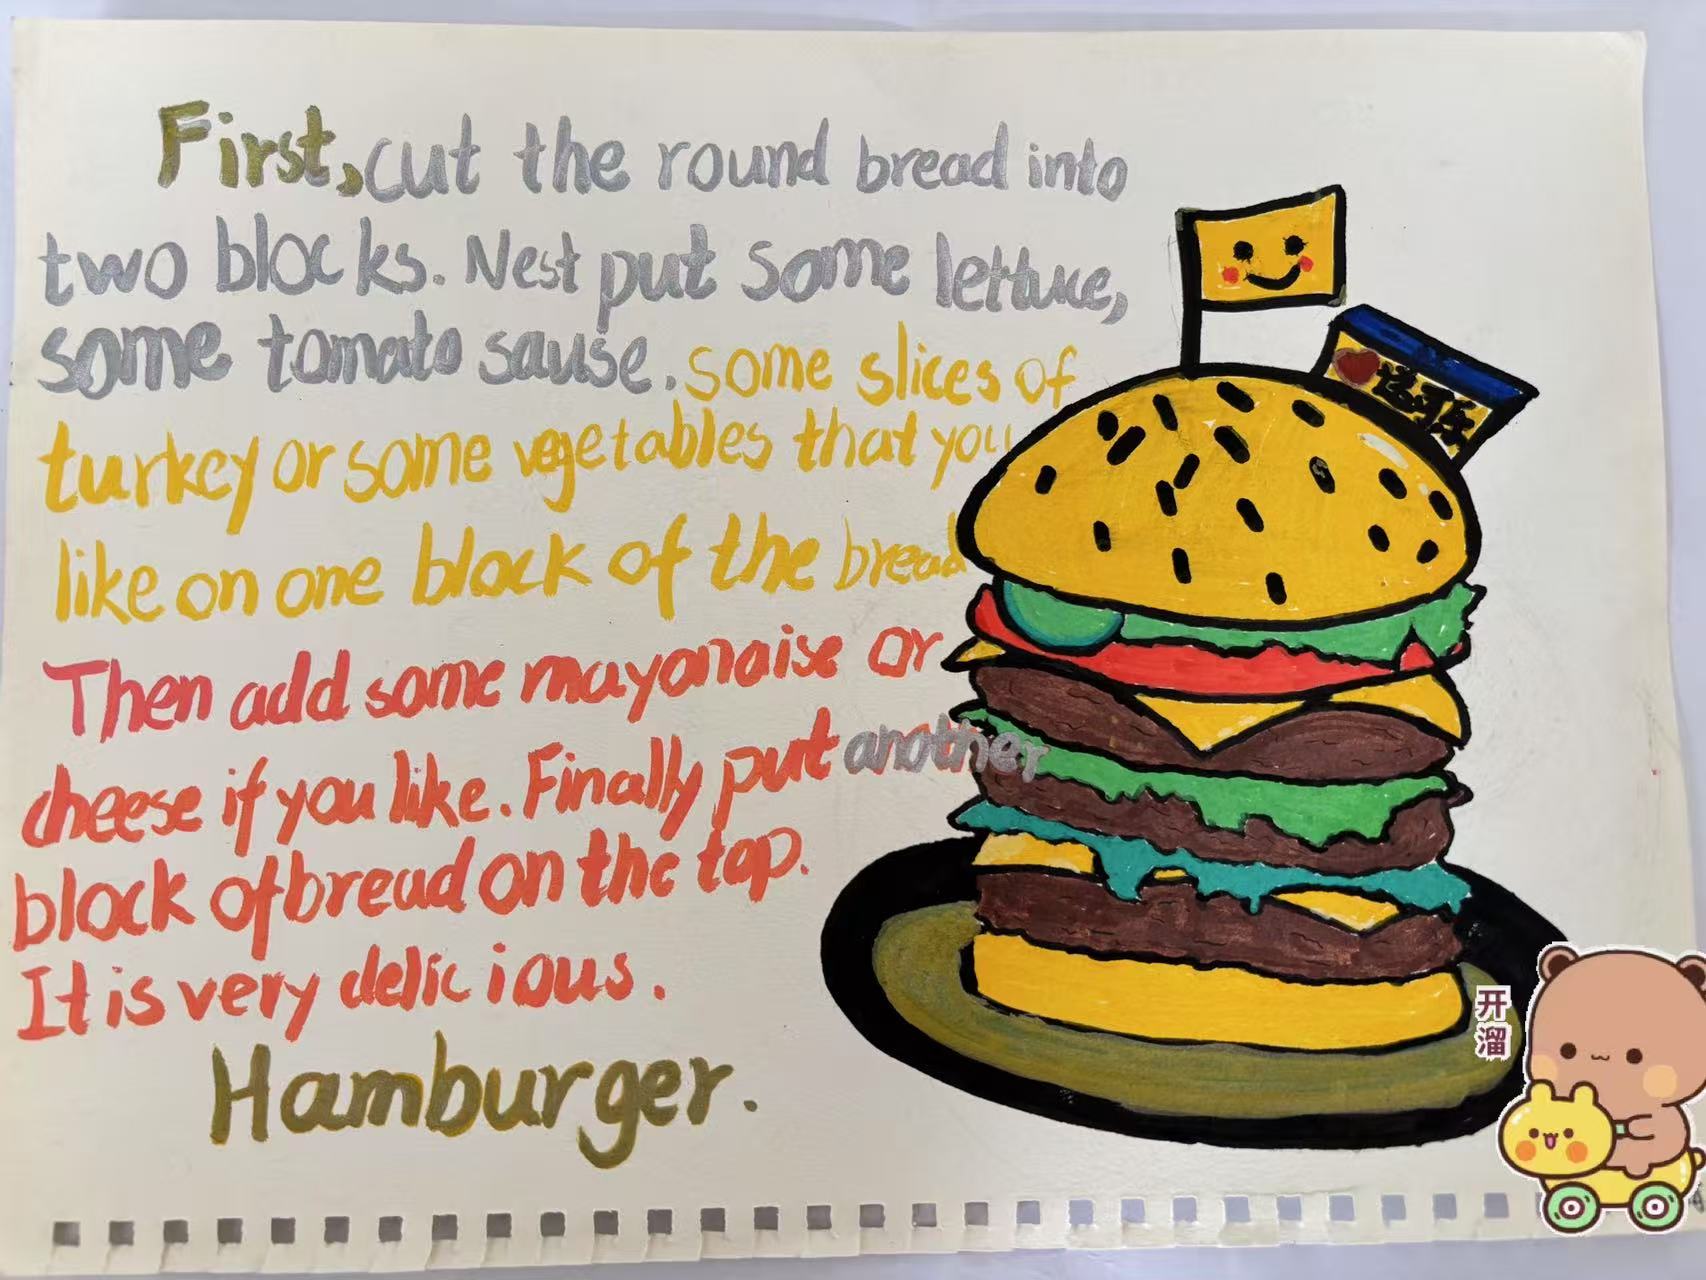 First, cut the round bread into
two blocks. Nest put some lettuce,
some tomato sause. some slices of
turkey or some vegetables that you
like on one block of the bread
Then add some mayonaise or
cheese if you like. Finally put another
block of bread on the top.
It is very delicious.
Hamburger.
开溜